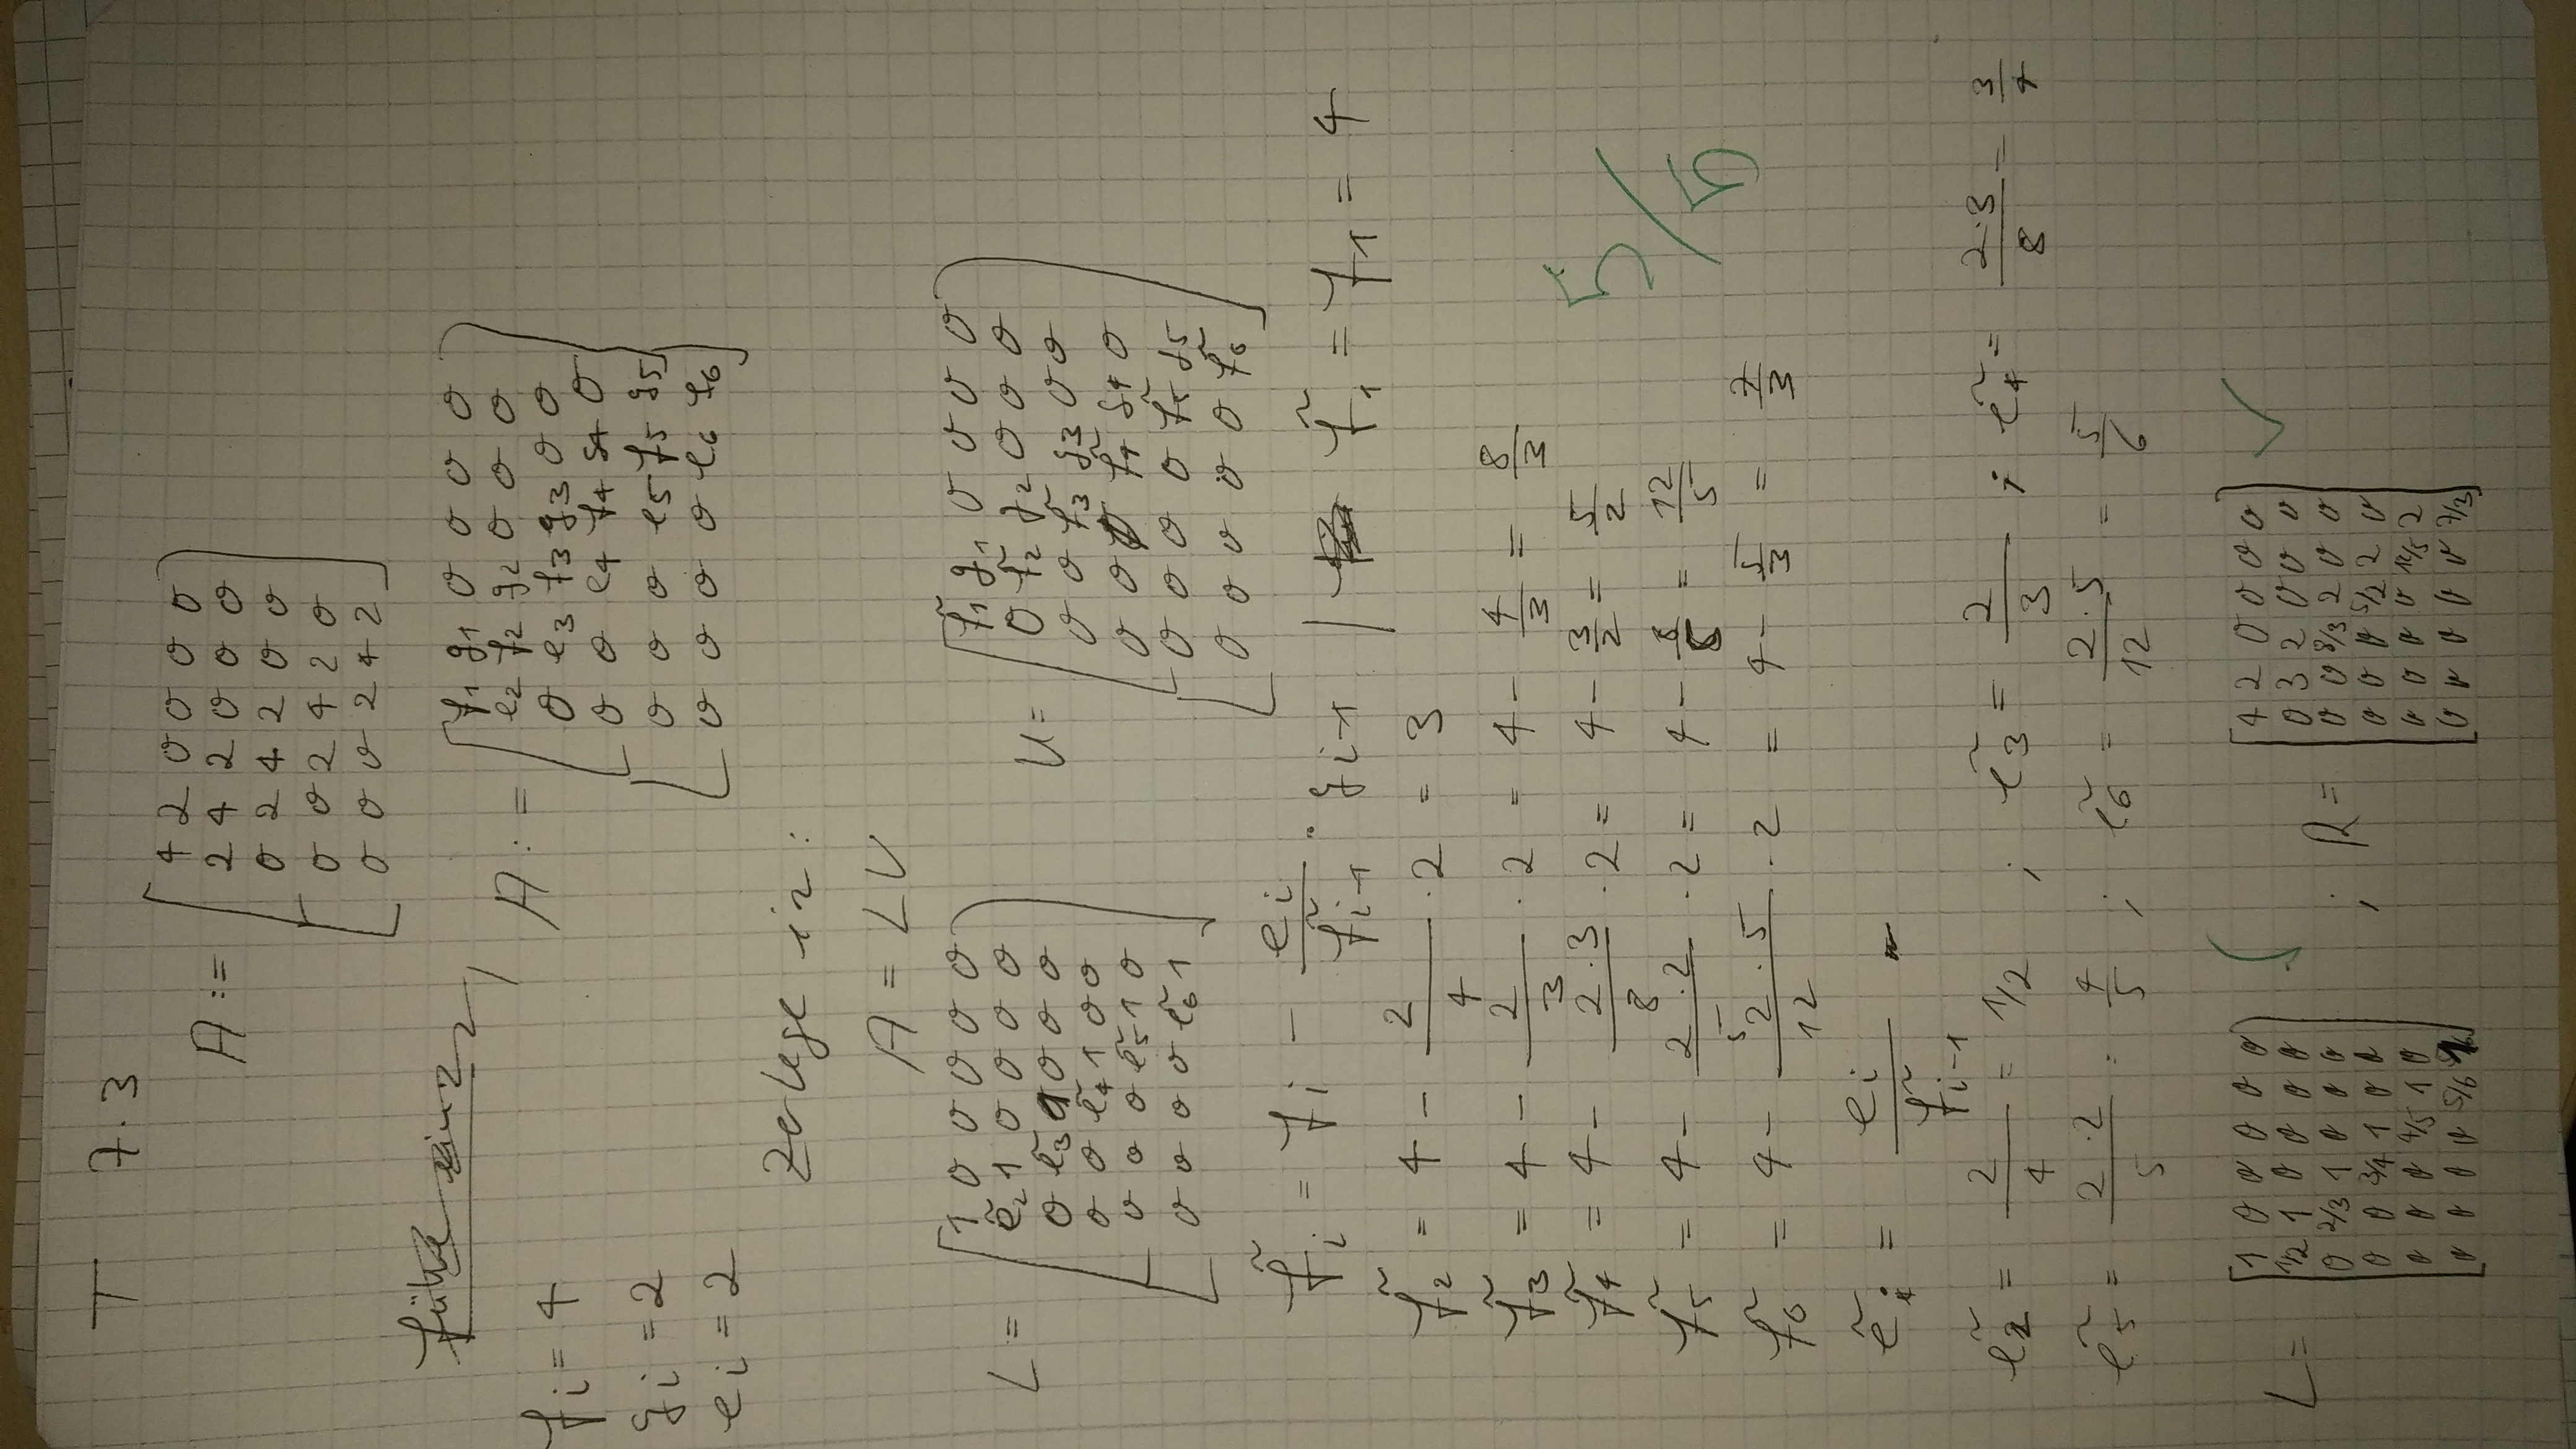 T 7.3
A := [ 4 2 0 0 0 0
2 4 2 0 0 0
0 2 4 2 0 0
0 0 2 4 2 0
0 0 0 2 4 2 ]
f_i = 4
g_i = 2
e_i = 2
A := [ f_1 g_1 0 0 0 0
e_2 f_2 g_2 0 0 0
0 e_3 f_3 g_3 0 0
0 0 e_4 f_4 g_4 0
0 0 0 e_5 f_5 g_5
0 0 0 0 e_6 f_6 ]
Zerlege in:
A = LU
L = [ 1 0 0 0 0 0
ẽ_2 1 0 0 0 0
0 ẽ_3 1 0 0 0
0 0 ẽ_4 1 0 0
0 0 0 ẽ_5 1 0
0 0 0 0 ẽ_6 1 ]
U = [ f̃_1 g_1 0 0 0 0
0 f̃_2 g_2 0 0 0
0 0 f̃_3 g_3 0 0
0 0 0 f̃_4 g_4 0
0 0 0 0 f̃_5 g_5
0 0 0 0 0 f̃_6 ]
f̃_i = f_i - e_i/f̃_{i-1} · g_{i-1} | f̃_1 = f_1 = 4
f̃_2 = 4 - 2/4 · 2 = 3
f̃_3 = 4 - 2/3 · 2 = 4 - 4/3 = 8/3
f̃_4 = 4 - (2·3)/8 · 2 = 4 - 3/2 = 5/2
f̃_5 = 4 - (2·2)/5 · 2 = 4 - 8/5 = 12/5
f̃_6 = 4 - (2·5)/12 · 2 = 4 - 5/3 = 7/3
5/5
ẽ_i = e_i/f̃_{i-1}
ẽ_2 = 2/4 = 1/2 ; ẽ_3 = 2/3 ; ẽ_4 = (2·3)/8 = 3/4
ẽ_5 = (2·2)/5 = 4/5 ; ẽ_6 = (2·5)/12 = 5/6
L = [ 1 0 0 0 0 0
1/2 1 0 0 0 0
0 2/3 1 0 0 0
0 0 3/4 1 0 0
0 0 0 4/5 1 0
0 0 0 0 5/6 1 ] ✓
; R = [ 4 2 0 0 0 0
0 3 2 0 0 0
0 0 8/3 2 0 0
0 0 0 5/2 2 0
0 0 0 0 12/5 2
0 0 0 0 0 7/3 ] ✓